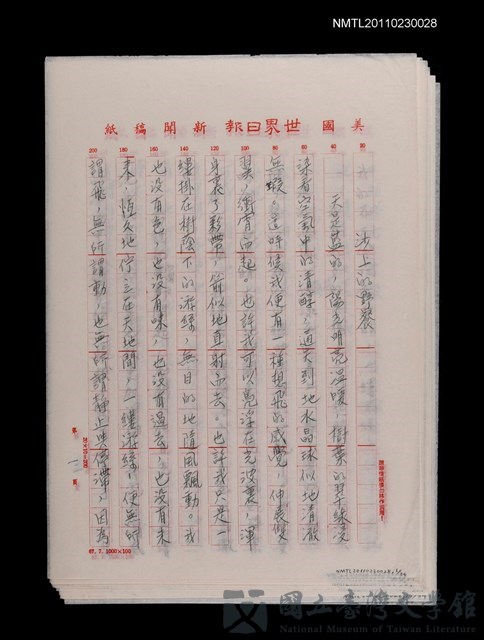 NMTL20110230028
美國世界日報新聞稿紙
20
40
60
80
100
120
140
160
180
200
沙上的野宴
天是藍的,陽光明亮溫暖,樹葉的翠綠浸
染着空氣中的清醇,這天到地水晶球似地清澈
無瑕。這時候我便有一種想飛的感覺,伸展雙
翼,衝霄而起。也許我可以飄浮在光波裏,渾
身裹了彩帶,箭似地直射而去。也許我只是一
縷掛在樹蔭下的游絲,無目的地隨風飄動。我
也沒有色,也沒有味,也沒有過去,也沒有未
來,恆久地佇立在天地間,一縷游絲,便無所
謂飛,無所謂動,也無所謂靜止與停滯,因為
67.7.1000×100
NMTL20110230028
國立臺灣文學館
National Museum of Taiwan Literature